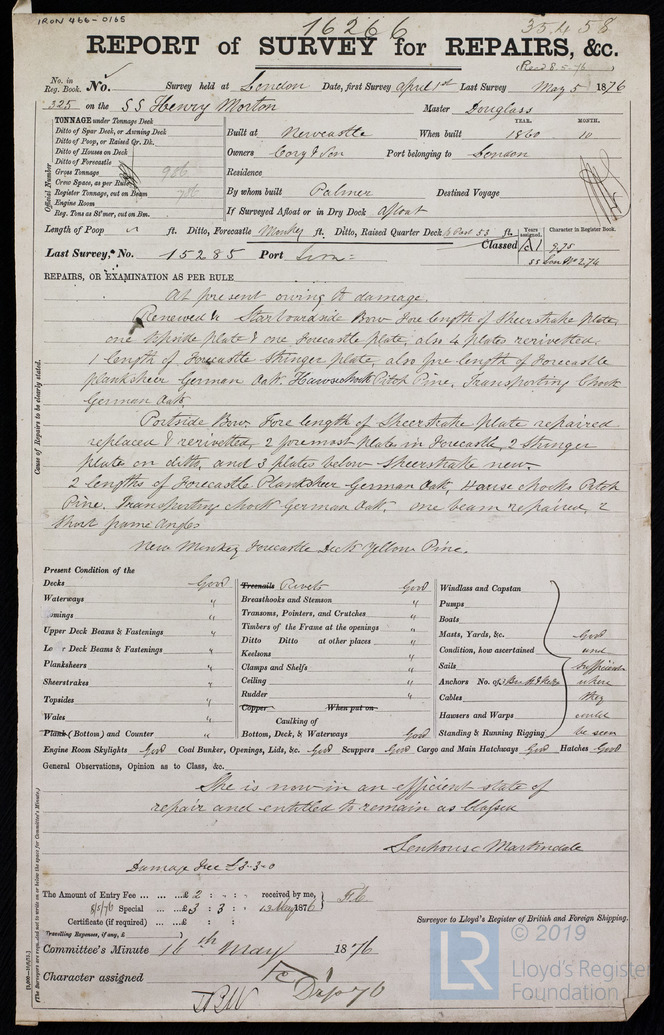 IRON 466-0165
16266
35458
REPORT of SURVEY for REPAIRS, &c.
Rec'd 8.5.76
No. in Reg. Book. No. Survey held at London Date, first Survey April 1st Last Survey May 5 1876
325 on the SS Henry Morton Master Douglass
TONNAGE under Tonnage Deck
Ditto of Spar Deck, or Awning Deck
Ditto of Poop, or Raised Qr. Dk.
Ditto of Houses on Deck
Ditto of Forecastle
Gross Tonnage 986
Crew Space, as per Rule
Register Tonnage, cut on Beam 786
Engine Room
Reg. Tons as St'mer, cut on Bm.
Official Number
YEAR. MONTH.
Built at Newcastle When built 1860 10
Owners Cory & Son Port belonging to London
Residence
By whom built Palmer Destined Voyage
If Surveyed Afloat or in Dry Dock Afloat
Length of Poop ft. Ditto, Forecastle Monkey ft. Ditto, Raised Quarter Deck 53 ft.
Classed Years assigned. Character in Register Book.
A1 9,75
Last Survey,* No. 15285 Port Lon:
SS Lon No 2,74
REPAIRS, OR EXAMINATION AS PER RULE
At present owing to damage.
Renewed to Starboardside Bow Fore length of Sheerstrake plate,
one topside plate & one Forecastle plate, also 4 plates rerivetted,
1 length of Forecastle Stringer plate, also fore length of Forecastle
planksheer German Oak, Hawse chock Pitch Pine, Transporting Chock
German Oak
Portside Bow Fore length of Sheerstrake plate repaired
replaced & rerivetted, 2 foremost plates in Forecastle, 2 Stringer
plate on ditto, and 3 plates below Sheerstrake new.
2 lengths of Forecastle Planksheer German Oak, Hause chocks Pitch
Pine. Transporting chock German Oak. one beam repaired, 2
short frame Angles
New Monkey Forecastle Deck Yellow Pine.
Cause of Repairs to be clearly stated.
Present Condition of the
Decks Good
Waterways "
Comings "
Upper Deck Beams & Fastenings "
Lower Deck Beams & Fastenings "
Planksheers "
Sheerstrakes "
Topsides "
Wales "
Plank (Bottom) and Counter "
Treenails Rivets Good
Breasthooks and Stemson "
Transoms, Pointers, and Crutches "
Timbers of the Frame at the openings "
Ditto Ditto at other places "
Keelsons "
Clamps and Shelfs "
Ceiling "
Rudder "
Copper When put on
Caulking of
Bottom, Deck, & Waterways Good
Windlass and Capstan
Pumps
Boats
Masts, Yards, &c.
Condition, how ascertained
Sails
Anchors No. of
Cables
Hawsers and Warps
Standing & Running Rigging
Good
and
sufficient
where
they
could
be seen
Engine Room Skylights Good Coal Bunker, Openings, Lids, &c. Good Scuppers Good Cargo and Main Hatchways Good Hatches Good
General Observations, Opinion as to Class, &c.
She is now in an efficient state of
repair and entitled to remain as Classed
Senhouse Martindale
Damage Fee £3-3-0
The Amount of Entry Fee £ 2 : : received by me,
8/5/76 Special £ 3 : 3 : 13 May 1876
Certificate (if required) £ : :
Travelling Expenses, if any, £
Surveyor to Lloyd's Register of British and Foreign Shipping.
Committee's Minute 16th May 1876
Character assigned
Dap 76
(The Surveyors are requested not to write on or below the space for Committee's Minute.)
© 2019
LR
Lloyd's Register
Foundation